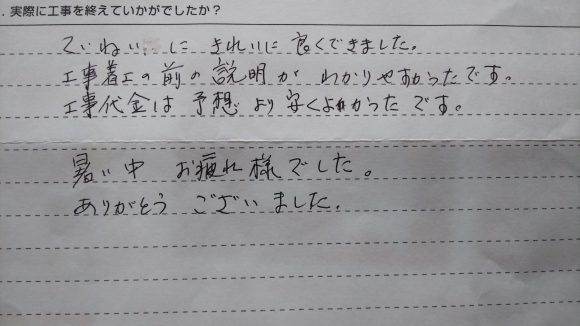 . 実際に工事を終えていかがでしたか？
ていねいに きれいに 良くできました。
工事着工の前の説明が わかりやすかったです。
工事代金は 予想より安くよかったです。
暑い中 お疲れ様でした。
ありがとう ございました.